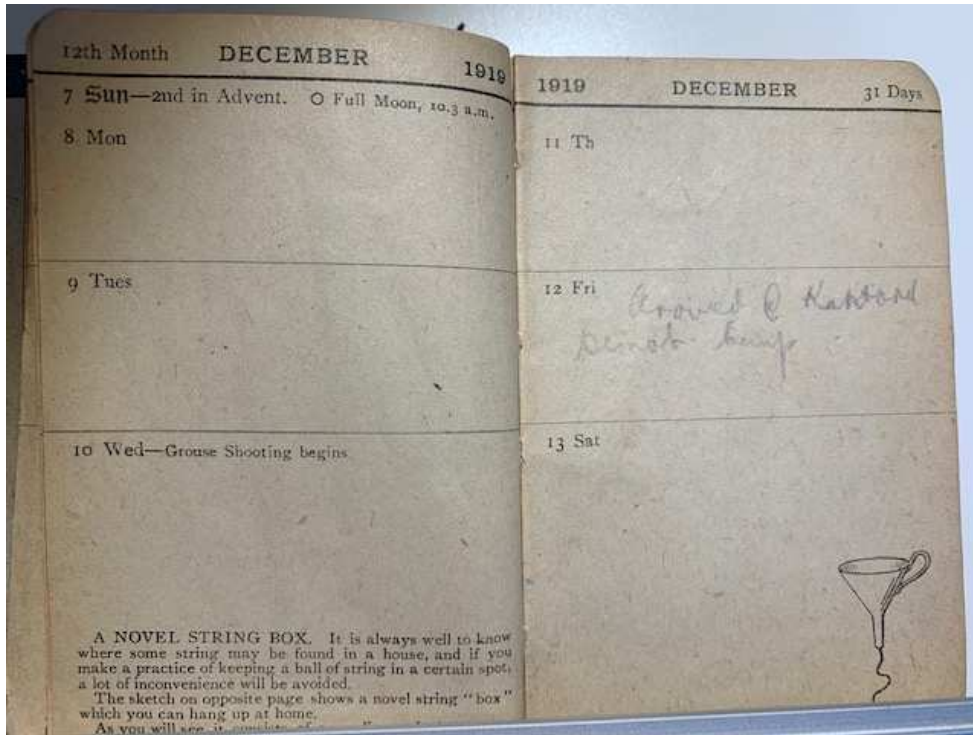 12th Month DECEMBER 1919
7 Sun—2nd in Advent. O Full Moon, 10.3 a.m.
8 Mon
9 Tues
10 Wed—Grouse Shooting begins
A NOVEL STRING BOX. It is always well to know
where some string may be found in a house, and if you
make a practice of keeping a ball of string in a certain spot,
a lot of inconvenience will be avoided.
The sketch on opposite page shows a novel string "box"
which you can hang up at home.
As you will see, it consists of
1919 DECEMBER 31 Days
11 Th
12 Fri
Arrived @
13 Sat